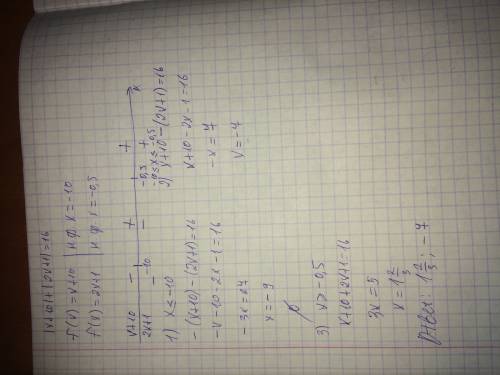 |x+10|+|2x+1|=16
f(x)=x+10 | н.ф. x=-10
f(x)=2x+1 | н.ф. x=-0,5
x+10 - + +
2x+1 - -10 - -0,5 + x
1) x≤-10
-(x+10)-(2x+1)=16
-x-10-2x-1=16
-3x=27
x=-9
∅
2) -10≤x≤-0,5
x+10-(2x+1)=16
x+10-2x-1=16
-x=7
x=-7
3) x>-0,5
x+10+2x+1=16
3x=5
x=1 2/3
Ответ: 1 2/3; -7